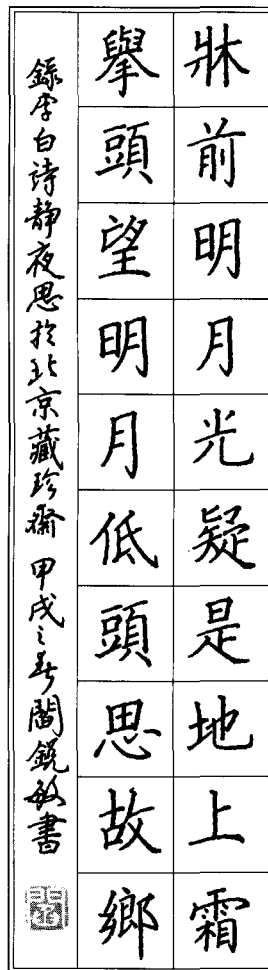 牀前明月光疑是地上霜
舉頭望明月低頭思故鄉
錄李白詩靜夜思於北京藏珍齋 甲戌之春閻銳敏書